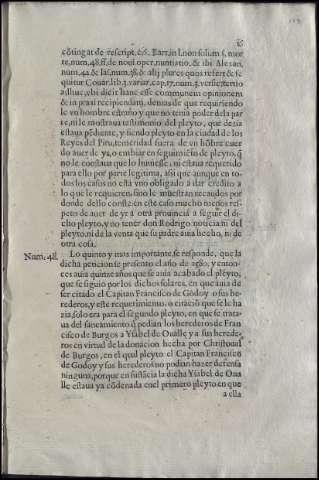 cõtingat de rescript. &c. Bart. in l. non solum §. mor
te, num. 48. ff. de noui oper. nuntiatio, & ibi Alexan.
num. 44. & Ias. num. 38. & alij plures quos refert & se
quitur Couar. lib. 3. variar. cap. 17. num. 3. versic. tertio
adhuc, vbi dicit hanc esse communem opinionem
& in praxi recipiendam, demas de que requiriendo
le vn hombre estraño y que no tenia poder dela par
te, ni le mostraua testimonio del pleyto, que dezia
estaua pẽdiente, y siendo pleyto en la ciudad de los
Reyes del Piru, temeridad fuera de vn hõbre cuer
do auer de ya, o embiar en seguimiẽto de pleyto, q̃
no le constaua que lo huuiesse, ni estaua requerido
para ello por parte legitima, assi que aunque en to
dos los casos no està vno obligado a dar credito a
lo que le requieren, sino le muestran recaudos por
donde dello conste: en este caso mucho menos res-
peto de auer de yr a otra prouincia a seguir el di-
cho pleyto, y no tener don Rodrigo noticia, ni del
pleyto, ni de la venta que su padre auia hecho, ni de
otra cosa.
Num. 48. Lo quinto y mas importante, se responde, que la
dicha peticion se presento el año de 1580, y enton-
ces auia quinze años que se auia acabado el pleyto,
que se siguio por los dichos solares, en que auia de
ser citado el Capitan Francisco de Godoy o sus he-
rederos, y este requirimiento. o citaciõ que se le ha
zia, solo era para el segundo pleyto, en que se trata-
ua del saneamiento q̃ podian los herederos de Fran
cisco de Burgos a Ysabel de Oualle, y a sus herede-
ros en virtud de la donacion hecha por Christoual
de Burgos, en el qual pleyto el Capitan Francisco
de Godoy y sus herederos no podian hazer defensa
ninguna, porque en sustãcia la dicha Ysabel de Oua
lle estaua ya cõdenada en el primero pleyto en que
a ella